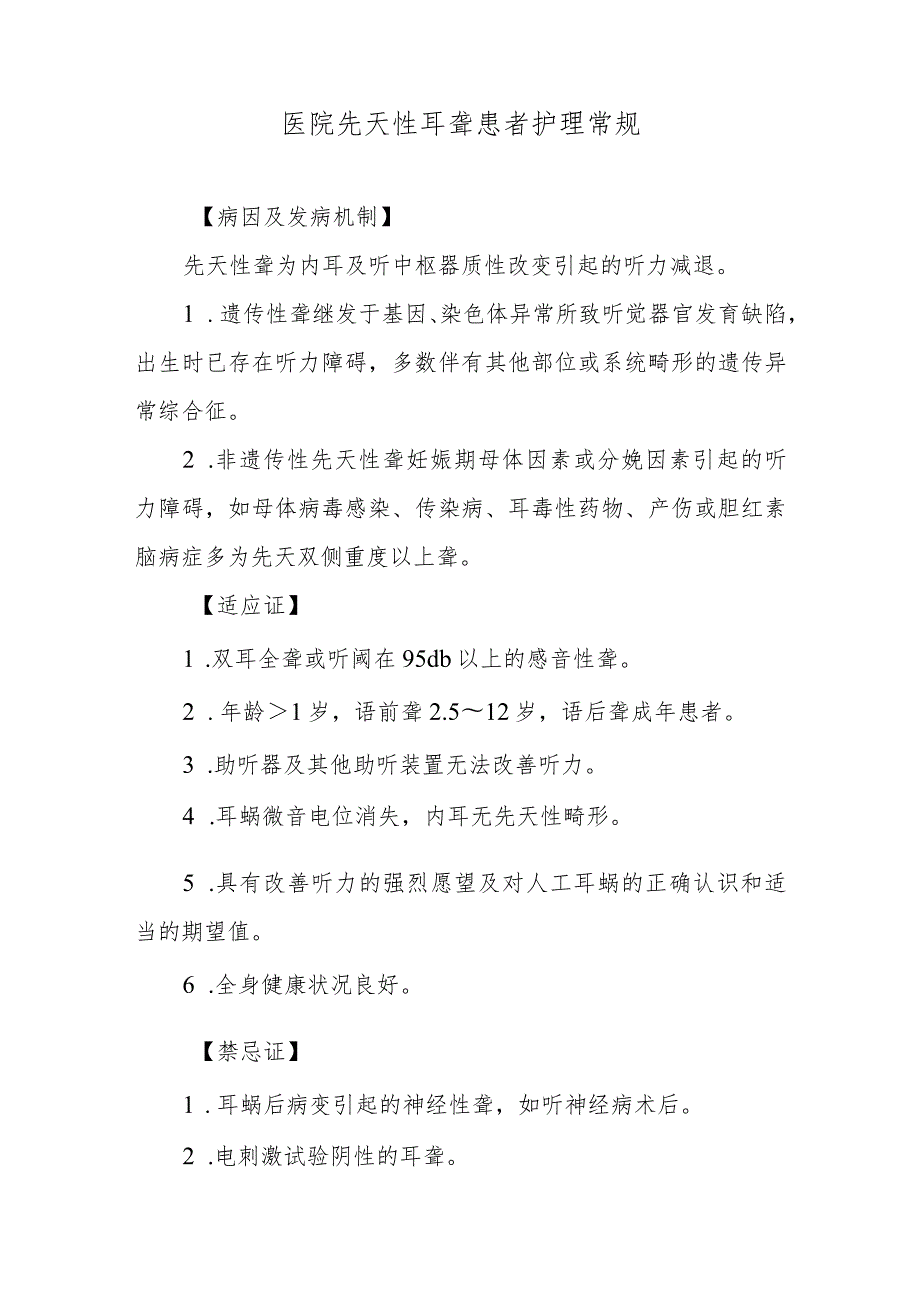 医院先天性耳聋患者护理常规
【病因及发病机制】
先天性聋为内耳及听中枢器质性改变引起的听力减退。
1 .遗传性聋继发于基因、染色体异常所致听觉器官发育缺陷，
出生时已存在听力障碍，多数伴有其他部位或系统畸形的遗传异
常综合征。
2 .非遗传性先天性聋妊娠期母体因素或分娩因素引起的听
力障碍，如母体病毒感染、传染病、耳毒性药物、产伤或胆红素
脑病症多为先天双侧重度以上聋。
【适应证】
1 .双耳全聋或听阈在 95db 以上的感音性聋。
2 .年龄＞1 岁，语前聋 2.5～12 岁，语后聋成年患者。
3 .助听器及其他助听装置无法改善听力。
4 .耳蜗微音电位消失，内耳无先天性畸形。
5 .具有改善听力的强烈愿望及对人工耳蜗的正确认识和适
当的期望值。
6 .全身健康状况良好。
【禁忌证】
1 .耳蜗后病变引起的神经性聋，如听神经病术后。
2 .电刺激试验阴性的耳聋。